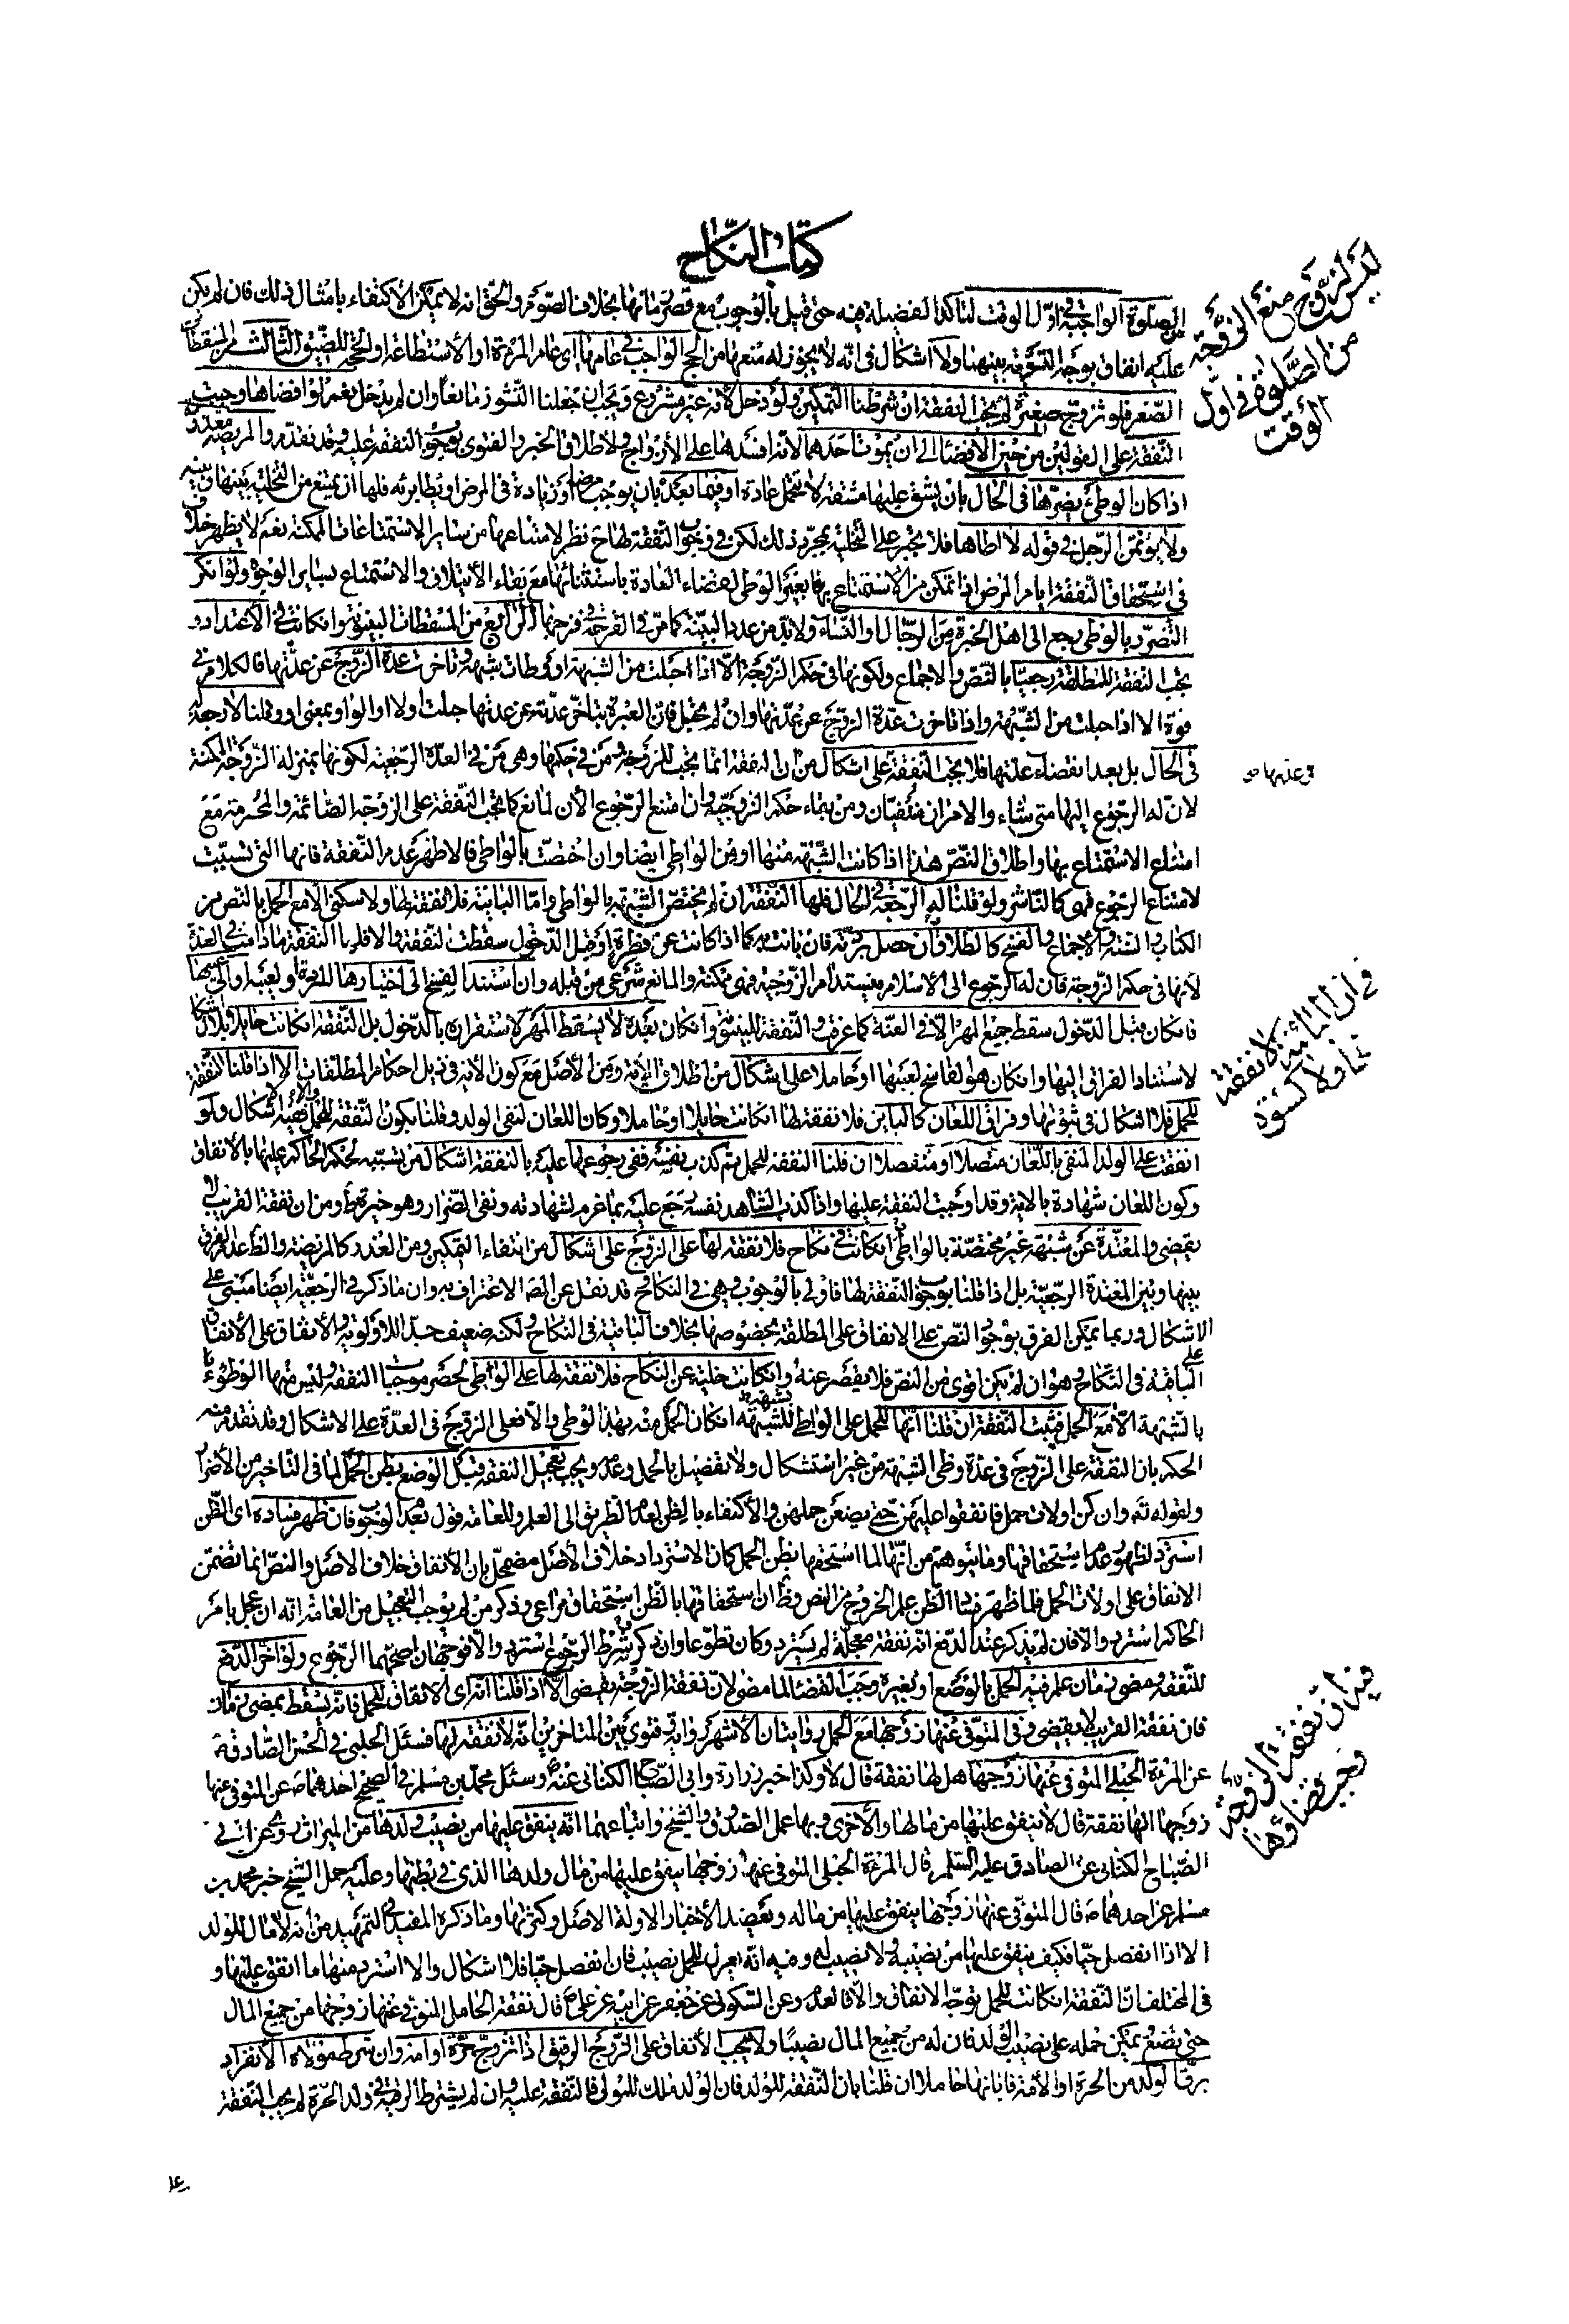 كتاب النكاح
الصلوة الواجبة في اول الوقت لتاكد الفضيلة فيه حتى قيل بالوجوب مع قصر زمانها بخلاف الصوم والحق انه لا يمكن الاكتفاء بامثال ذلك فان لم يكن
عليه اتفاق يوجه التسوية بينهما ولا اشكال في انه لا يجوز له منعها من الحج الواجب في عامها اى عام المرءة او الاستطاعة او الحج للضيق الثالث من المسقطات
الصغر فلو تزوج صغيرة لم يجب النفقة ان شرطنا التمكين ولو دخل لانه غير مشروع ويجب ان جعلنا النشوز مانعا وان لم يدخل نعم لو افضاها وجبت
النفقة على القولين من حين الافضاء الى ان يموت احدهما لانه افسدها على الازواج ولاطلاق الخبر والفتوى بوجوب النفقة عليه وقد تقدم والمريضة معذورة
اذا كان الوطئ يضر بها في الحال بان يشق عليها مشقة لا تتحمل عادة او فيما بعد بان يوجب مرضا او زيادة في المرض او بطا برئه فلها ان يمتنع من التخلية بينها وبينه
ولا يؤتمن الرجل في قوله لا اطاها فلا يجبر على التخلية بمجرد ذلك لكن في وجوب النفقة لها ح نظر لامتناعها من ساير الاستمتاعات الممكنة نعم لا يظهر خلاف
في استحقاق النفقة ايام المرض اذا تمكن من الاستمتاع بها بغير الوطى لقضاء العادة باستثنائها مع بقاء الايتلاف والاستمتاع بساير الوجوه ولو انكر
التضرر بالوطى رجع الى اهل الخبرة من الرجال او النساء ولا بد من عدد البينة كما مر في القرحة في فرجها الرابع من المسقطات البينونة وان كانت في الاعتداد و
يجب النفقة للمطلقة رجعيا بالنص والاجماع ولكونها في حكم الزوجة الا اذا احبلت من الشبهة او وطات بشبهة وتاخرت عدة الزوج عن عدتها فالكلام في
قوة الا اذا حبلت من الشبهة واذا تاخرت عدة الزوج عن عدتها وان لم يحبل فان العبرة بتاخر عدته عن عدتها حبلت اولا او الواو بمعنى او وقلنا لا رجعة له
في الحال بل بعد انقضاء عدتها فلا يجب النفقة على اشكال من ان النفقة انما يجب للزوجة ومن في حكمها وهى من في العدة الرجعية لكونها بمنزلة الزوجة الممكنة
لان له الرجوع اليها متى شاء والامران منفيان ومن بقاء حكم الزوجية وان امتنع الرجوع الان لمانع كما يجب النفقة على الزوجة الصائمة والمحرمة مع
امتناع الاستمتاع بها واطلاق النص هذا اذا كانت الشبهة منها او من الواطى ايضا وان اختصت بالواطى فالاظهر عدم النفقة فانها التي تسببت
لامتناع الرجوع فهى كالناشز ولو قلنا له الرجعة في الحال فلها النفقة ان لم يختص الشبهة بالواطى واما البائنة فلا نفقة لها ولا سكنى الا مع الحمل بالنص من
الكتاب والسنة والاجماع والفسخ كالطلاق فان حصل بردته فان بانت به كما اذا كانت عن فطرة او قبل الدخول سقطت النفقة والا فله بالنفقة ما دامت في العدة
لانها في حكم الزوجة فان له الرجوع الى الاسلام فيستدام الزوجية فهى ممكنة والمانع شرعى من قبله وان استند الفسخ الى اختيارها للردة او لعيبه او الى عيبها
فان كان قبل الدخول سقط جميع المهر الا في العنة كما عرفت والنفقة للبينونة وان كان بعده لا يسقط المهر لاستقراره بالدخول بل النفقة ان كانت حايلا وبلا اشكال
لاستناد الفراق اليها وان كان هو الفاسخ لعيبها او حاملا على اشكال من اطلاق الاية ومن الاصل مع كون الاية في ذيل احكام المطلقات الا اذا قلنا النفقة
للحمل فلا اشكال في ثبوتها وفراق اللعان كالباين فلا نفقة لها ان كانت حايلا او حاملا وكان اللعان لنفى الولد وقلنا بكون النفقة للحمل ففيه اشكال ولو
انفقت على الولد المنفى باللعان متصلا او منفصلا ان قلنا النفقة للحمل ثم كذب نفسه ففى رجوعها عليه بالنفقة اشكال من تسببه لحكم الحاكم عليها بالانفاق
وكون اللعان شهادة بالاية وقد اوجبت النفقة عليها واذا كذب الشاهد نفسه رجع عليه بما غرم لشهادته ونفى الضرار وهو خيرة ط ومن ان نفقة القريب لا
يقضى والمعتدة عن شبهة غير مختصة بالواطى ان كانت في نكاح فلا نفقة لها على الزوج على اشكال من انتفاء التمكين ومن العذر كالمريضة والظ عدم الفرق
بينها وبين المعتدة الرجعية بل اذا قلنا بوجوب النفقة لها فاولى بالوجوب وهى في النكاح وقد نقل عن المص الاعتراف به وان ما ذكر في الرجعية ايضا مبنى على
الاشكال وربما يمكن الفرق بوجود النص على الانفاق على المطلقة بخصوصها بخلاف الباقية في النكاح ولكنه ضعيف جدا للاولوية والاتفاق على الانفاق
على الباقية في النكاح وهو ان لم يكن اقوى من النص فلا يقصر عنه وان كانت خلية عن النكاح فلا نفقة لها على الواطى لحصر موجبات النفقة وليس منها الوطؤ
بالشبهة الا مع الحمل فيثبت النفقة ان قلنا انها للحمل على الواطى للشبهة ان كان الحمل منه بهذا الوطى والا فعلى الزوج في العدة على الاشكال وقد تقدم منه
الحكم بان النفقة على الزوج في عدة وطى الشبهة من غير استشكال ولا تفصيل بالحمل وعدمه ويجب تعجيل النفقة قبل الوضع بظن الحمل لما في التاخير من الاضرار
ولقوله تع وان كن اولات حمل فانفقوا عليهن حتى يضعن حملهن والاكتفاء بالظن لعدم الطريق الى العلم وللعامة قول بعدم الوجوب فان ظهر فساده اى الظن
استرد لظهور عدم استحقاقها وما يتوهم من انها لما استحقها بظن الحمل كان الاسترداد خلاف الاصل مضمحل بان الانفاق خلاف الاصل والنص انما تضمن
الانفاق على اولات الحمل فلما ظهر فساد الظن علم الخروج من النص وظ ان استحقاقها بالظن استحقاق مراعى وذكر من لم يوجب التعجيل من العامة انه ان عجل بامر
الحاكم استرد والا فان لم يذكر عند الدفع انه نفقة معجلة لم يسترد وكان تطوعا وان ذكر وشرط الرجوع استرد والا فوجهان اصحهما الرجوع ولو اخر الدفع
للنفقة ومضى زمان علم فيه الحمل بالوضع او بغيره وجب القضاء لما مضى لان نفقة الزوجة يقضى الا اذا قلنا انه اى الانفاق للحمل فانه يسقط بمضى زمان
فان نفقة القريب لا يقضى وفى المتوفى عنها زوجها مع الحمل روايتان الاشهر رواية وفتوى بين المتاخرين انه لا نفقة لها فسئل الحلبى في الحسن الصادق ع
عن المرءة الحبلى المتوفى عنها زوجها هل لها نفقة قال لا وكذا خبر زرارة وابى الصباح الكنانى عنه ع وسئل محمد بن مسلم في الصحيح احدهما ع عن المتوفى عنها
زوجها الها نفقة قال لا ينفق عليها من مالها والاخرى وبها عمل الصدوق والشيخ واتباعهما انه ينفق عليها من نصيب ولدها من الميراث روى عن ابى
الصباح الكنانى عن الصادق عليه السلام قال المرءة الحبلى المتوفى عنها زوجها ينفق عليها من مال ولدها الذى في بطنها وعليه حمل الشيخ خبر محمد بن
مسلم عن احدهما ع قال المتوفى عنها زوجها ينفق عليها من ماله ويعضد الاخبار الاولة الاصل وكثرتها وما ذكره المفيد في التمهيد من انه لا مال للولد
الا اذا انفصل حيا فكيف ينفق عليها من نصيبه ولا نصيب له وفيه انه يعزل للحمل نصيب فان انفصل حيا فلا اشكال والا استرد منها ما انفق عليها و
في المختلف ان النفقة ان كانت للحمل توجه الانفاق والا فالعدم وعن السكونى عن جعفر عن ابيه عن على ع قال نفقة الحامل المتوفى عنها زوجها من جميع المال
حتى تضع يمكن حمله على نصيب الولد فان له من جميع المال نصيبا ولا يجب الانفاق على الزوج الرقيق اذا تزوج حرة او امة وان شرط مولاه الانفراد
برق الولد من الحرة او الامة فابانها حاملا ان قلنا بان النفقة للولد فان الولد ملك للمولى فالنفقة عليه وان لم يشترط الرقية في ولد الحرة لم يجب النفقة
ليس للزوج منع الزوجة
من الصلوة في اول
الوقت
في عدتها صح
في ان البائنة لا نفقة
لها ولا كسوة
في ان نفقة الزوجة
يجب قضاؤها